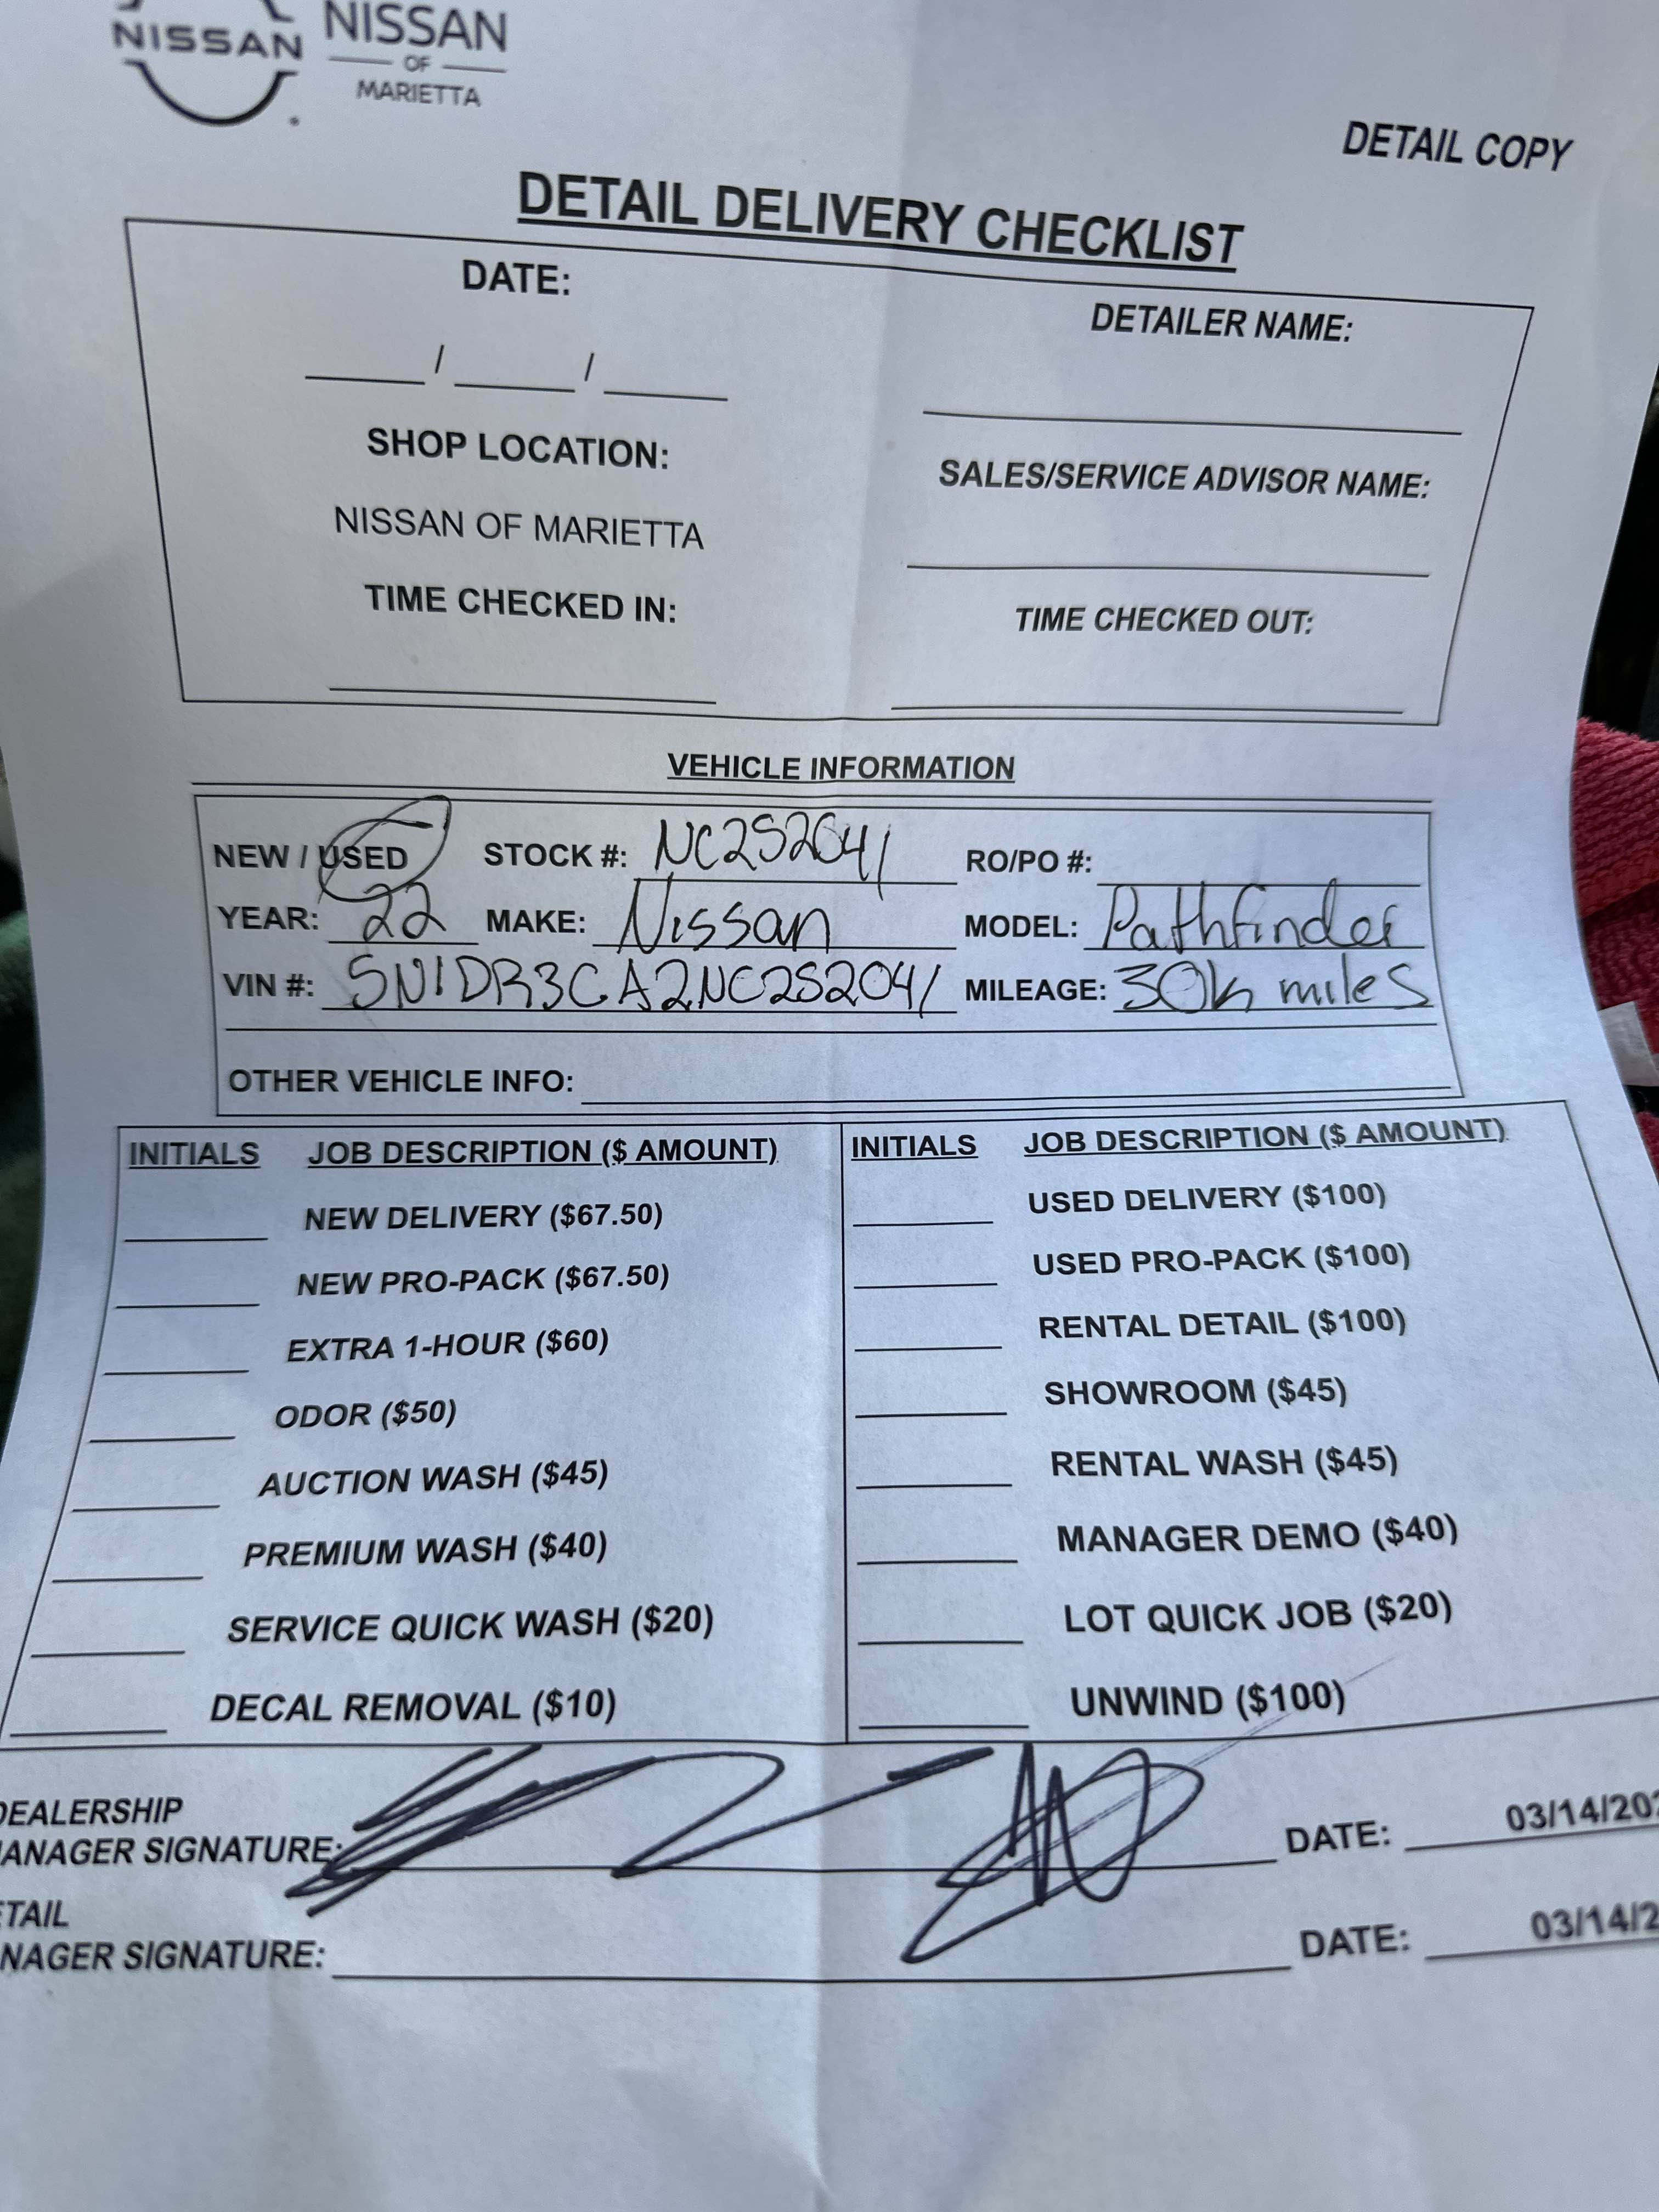 NISSAN
NISSAN
OF
MARIETTA
DETAIL COPY
DETAIL DELIVERY CHECKLIST
DATE:
DETAILER NAME:
/ /
SHOP LOCATION:
SALES/SERVICE ADVISOR NAME:
NISSAN OF MARIETTA
TIME CHECKED IN:
TIME CHECKED OUT:
VEHICLE INFORMATION
NEW / USED STOCK #: NC252041 RO/PO #:
YEAR: 22 MAKE: Nissan MODEL: Pathfinder
VIN #: 5N1DR3CA2NC252041 MILEAGE: 30k miles
OTHER VEHICLE INFO:
INITIALS JOB DESCRIPTION ($ AMOUNT) INITIALS JOB DESCRIPTION ($ AMOUNT)
NEW DELIVERY ($67.50) USED DELIVERY ($100)
NEW PRO-PACK ($67.50) USED PRO-PACK ($100)
EXTRA 1-HOUR ($60) RENTAL DETAIL ($100)
ODOR ($50) SHOWROOM ($45)
AUCTION WASH ($45) RENTAL WASH ($45)
PREMIUM WASH ($40) MANAGER DEMO ($40)
SERVICE QUICK WASH ($20) LOT QUICK JOB ($20)
DECAL REMOVAL ($10) UNWIND ($100)
DEALERSHIP
MANAGER SIGNATURE: DATE: 03/14/202
ETAIL
NAGER SIGNATURE: DATE: 03/14/2